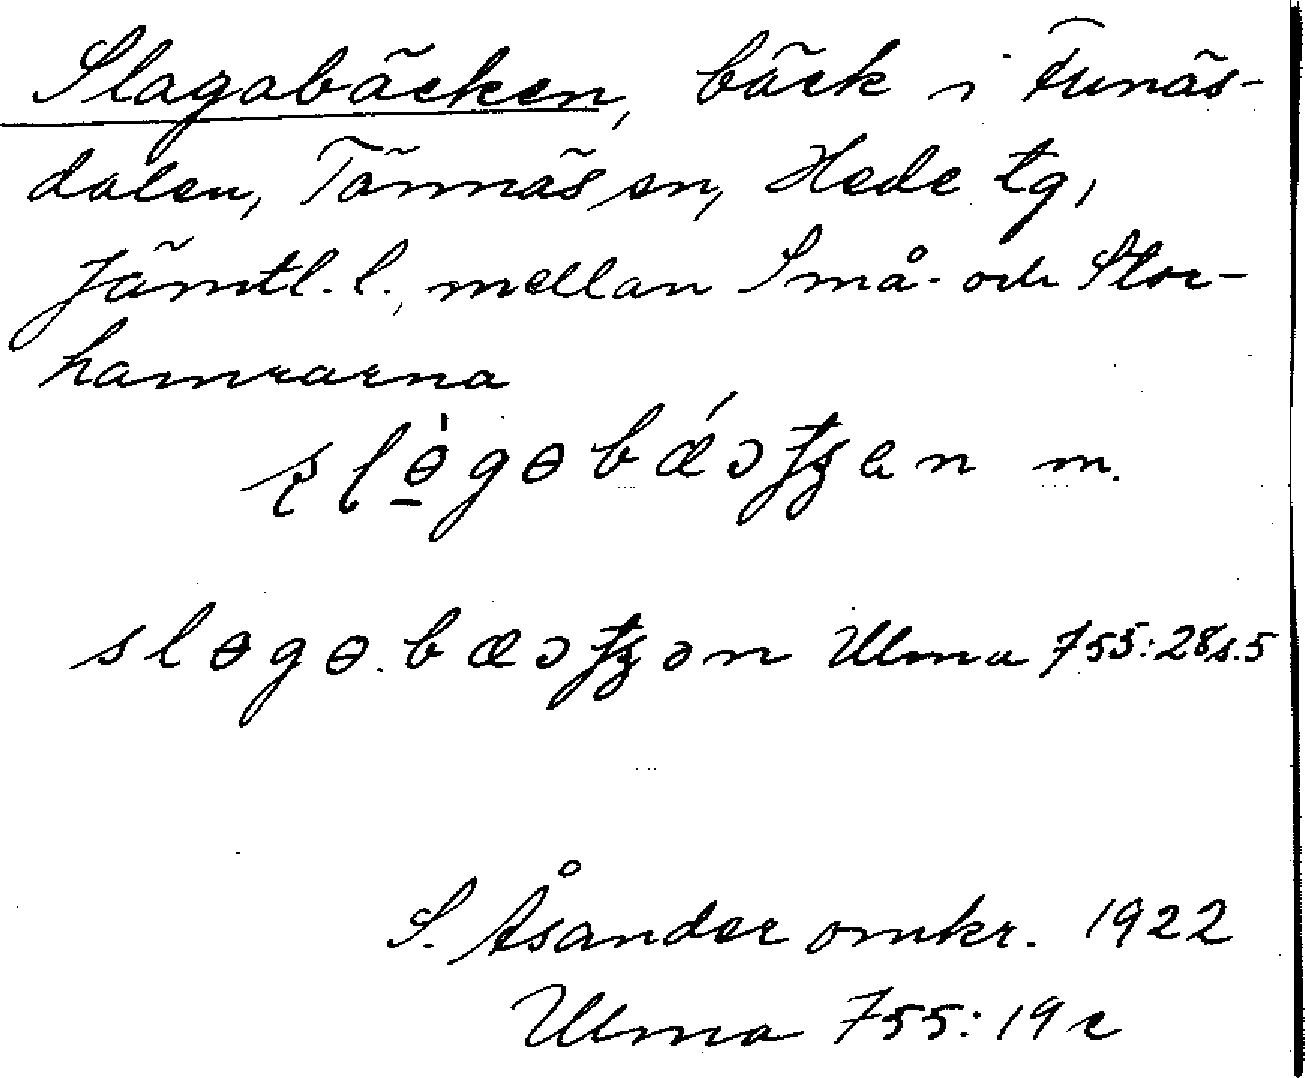 Slagabäcken, bäck i Funäs-
dalen, Tännäs sn, Hede tg,
Jämtl. l., mellan Små- och Stor-
hamrarna
slɵ̀gɵbǽɔʈʂan m.
slɵgɵbæɔʈʂən Ulma 755:28 s.5
S. Åsander omkr. 1922
Ulma 755:19c